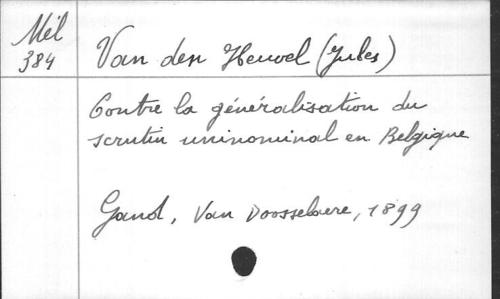 Mél
384
Van den Heuvel (Jules)
Contre la généralisation du
scrutin uninominal en Belgique
Gand, Van Doosselaere, 1899